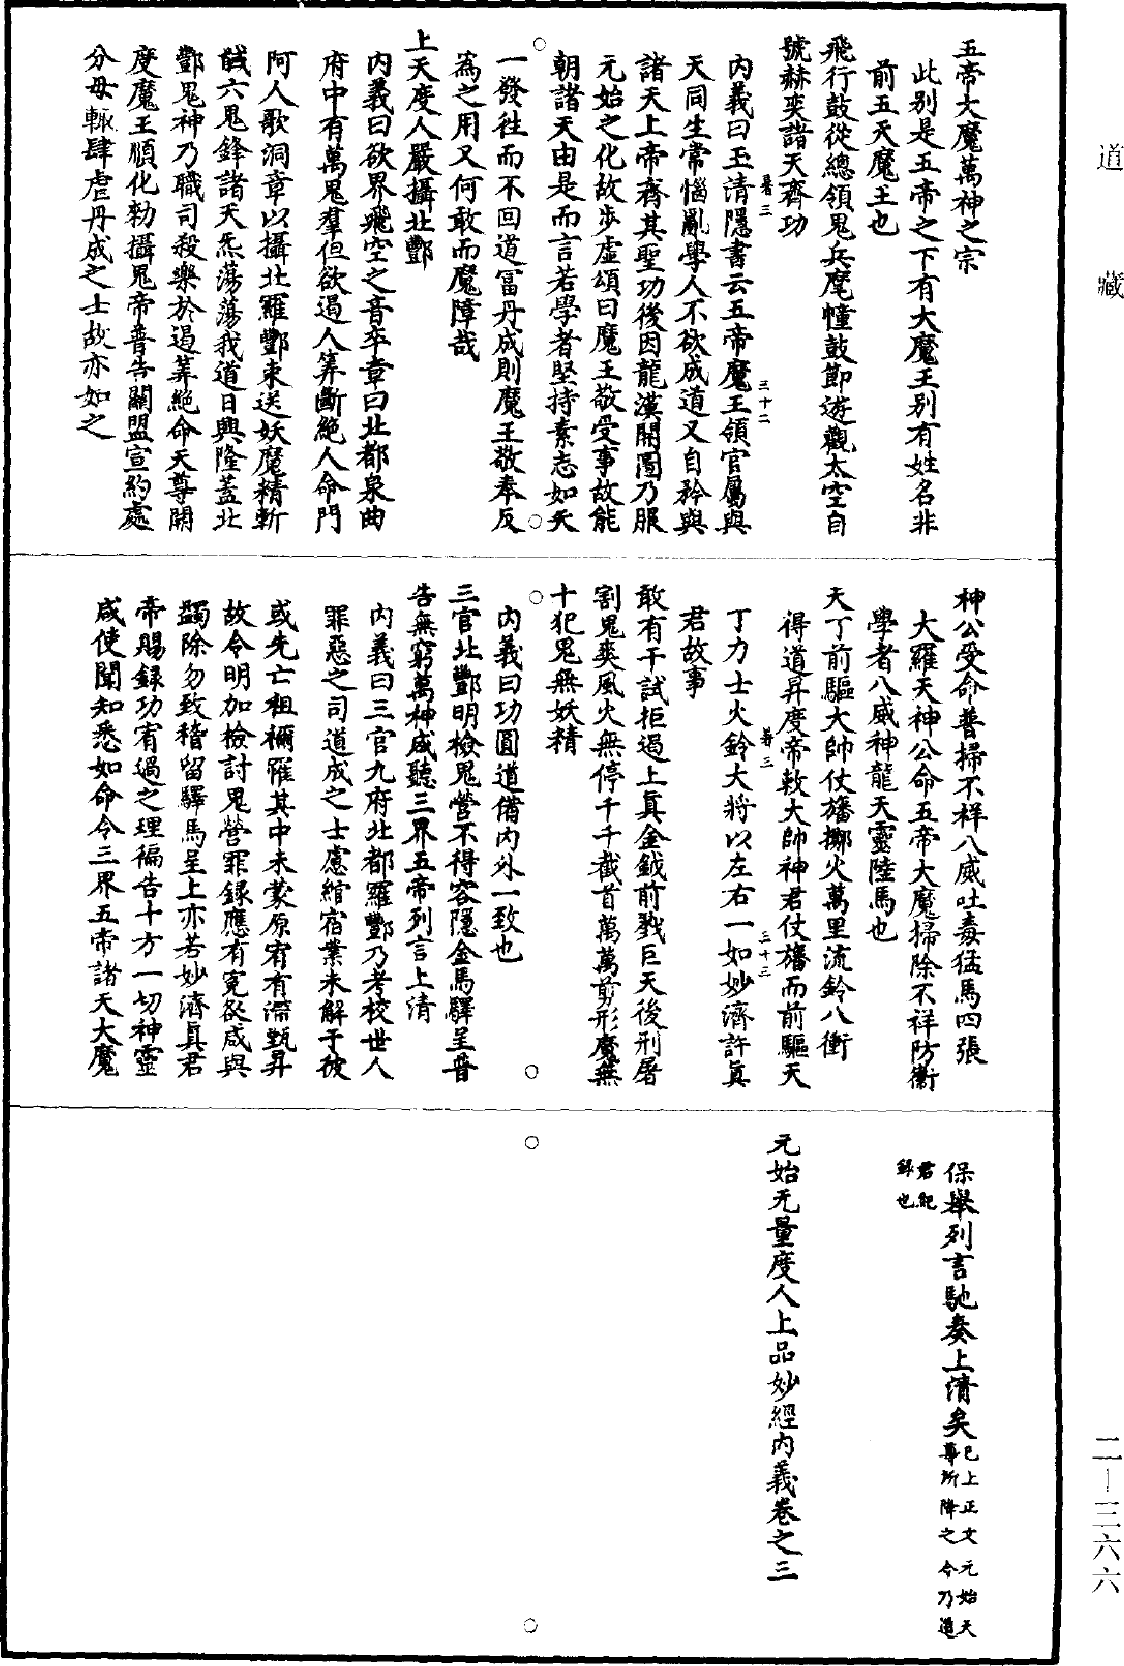 道藏
五帝大魔萬神之宗
此別是五帝之下有大魔王別有姓名非
前五天魔王也
飛行鼓從總領鬼兵麾幢鼓節遊觀太空自
號赫奕諸天齊功
内義曰玉清隱書云五帝魔王領官屬與
天同生常惱亂學人不欲成道又自矜與
諸天上帝齊其聖功後因龍漢開圖乃服
元始之化故步虛頌曰魔王敬受事故能
朝諸天由是而言若學者堅持素志如矢
一發往而不回道冨丹成則魔王敬奉反
為之用又何敢而魔障哉
上天度人嚴攝北酆
内義曰欲界飛空之音卒章曰北都泉曲
府中有萬鬼羣但欲遏人筭斷絶人命門
阿人歌洞章以攝北羅酆束送妖魔精斬
馘六鬼鋒諸天炁蕩蕩我道日興隆蓋北
酆鬼神乃職司殺樂於遏筭絶命天尊開
度魔王順化勑攝鬼帝普告關盟宣約處
分毋輙肆虐丹成之士故亦如之
三十二
神公受命普掃不祥八威吐毒猛馬四張
大羅天神公命五帝大魔掃除不祥防衞
學者八威神龍天靈陸馬也
天丁前驅大帥仗旛擲火萬里流鈴八衝
得道昇度帝敕大帥神君仗旛而前驅天
丁力士火鈴大將以左右一如妙濟許眞
君故事
敢有干試拒遏上眞金鉞前戮巨天後刑屠
割鬼爽風火無停千千截首萬萬剪形魔無
十犯鬼無妖精
内義曰功圓道備内外一致也
三官北酆明檢鬼營不得容隱金馬驛呈普
告無窮萬神咸聽三界五帝列言上清
内義曰三官九府北都羅酆乃考校世人
罪惡之司道成之士慮綰宿業未解于彼
或先亡祖禰罹其中未蒙原宥有滯甄昇
故令明加檢討鬼營罪録應有寃咎咸與
蠲除勿致稽留驛馬呈上亦若妙濟眞君
帝賜録功宥過之理徧告十方一切神靈
咸使聞知悉如命令三界五帝諸天大魔
三十三
保舉列言馳奏上清矣
已上正文元始天
尊所降之令乃道
君紀
録也
元始无量度人上品妙經内義卷之三
二—三六六